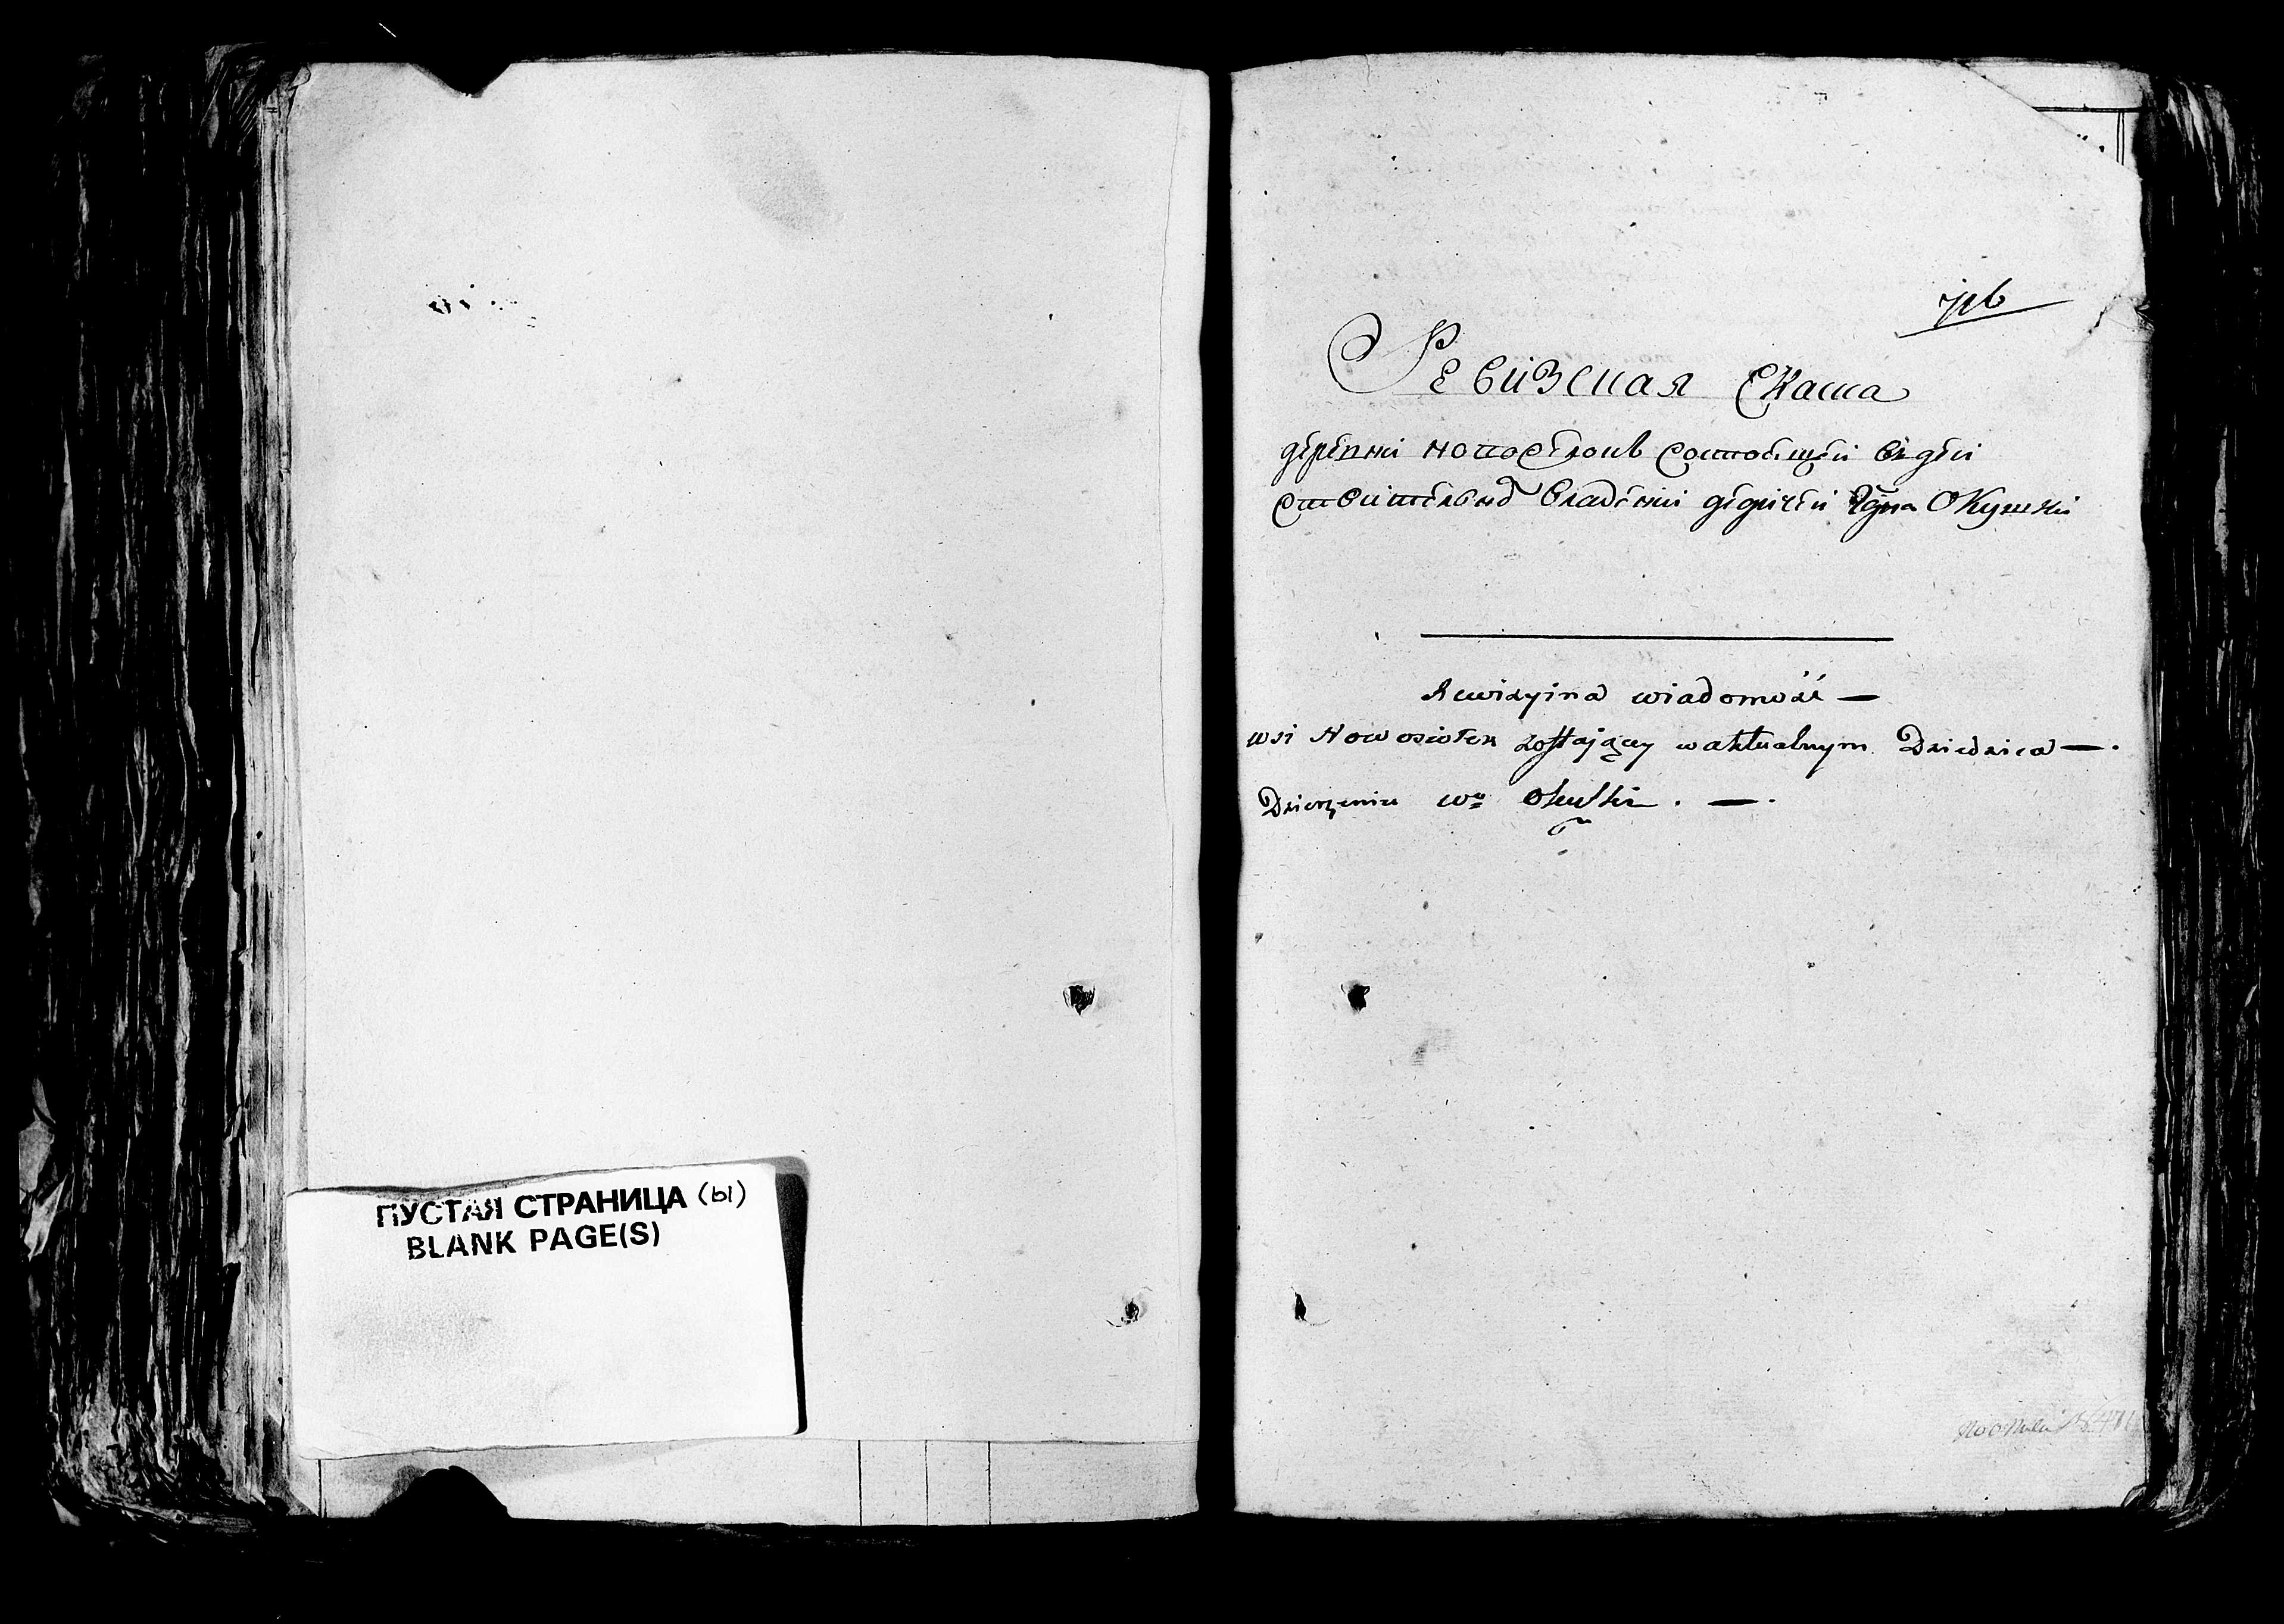 ПУСТАЯ СТРАНИЦА (Ы)
BLANK PAGE(S)
Ревизская Скаска
деревни состоящей в дей
ствительнод владении дедичеи Окушки
Rewizyina wiadomość —
wsi Nowosiołek zostający w aktualnym Dziedzica —.
Dzierzeniu Wo Okuszki . —.